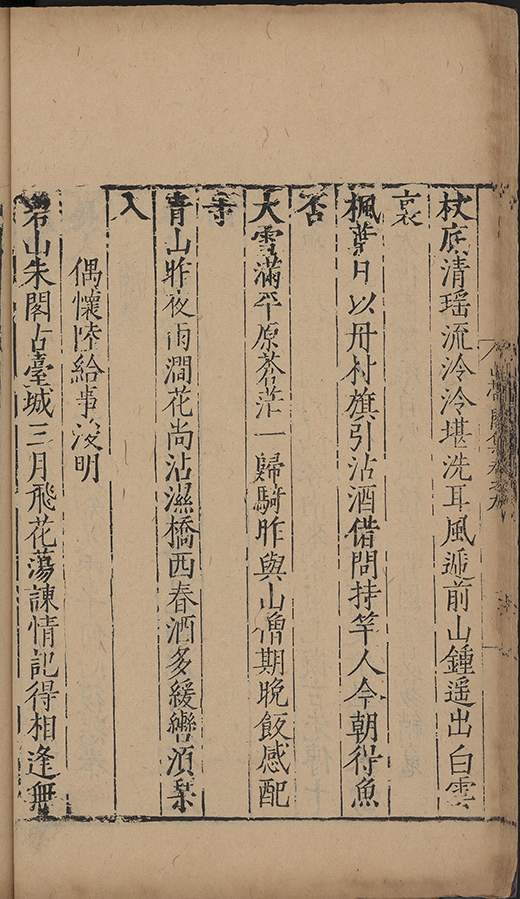 杖底清瑶流泠泠堪洗耳風遞前山鍾遥出白雲
裏
楓葉日以丹村旗引沽酒借問持竿人今朝得魚
否
大雪滿平原蒼茫一歸騎昨與山僧期晚飯感配
寺
青山昨夜雨澗花尚沾濕橋西春酒多緩轡湏
入
偶懷陸給事浚明
山朱閣占臺城三月飛花蕩諫情記得相逢無